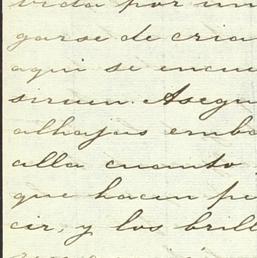 vida por un
garse de cria
aqui se encue
sirven. Asegu
alhajas emba
alla cuanto
que hacen pe
cir, y los brill